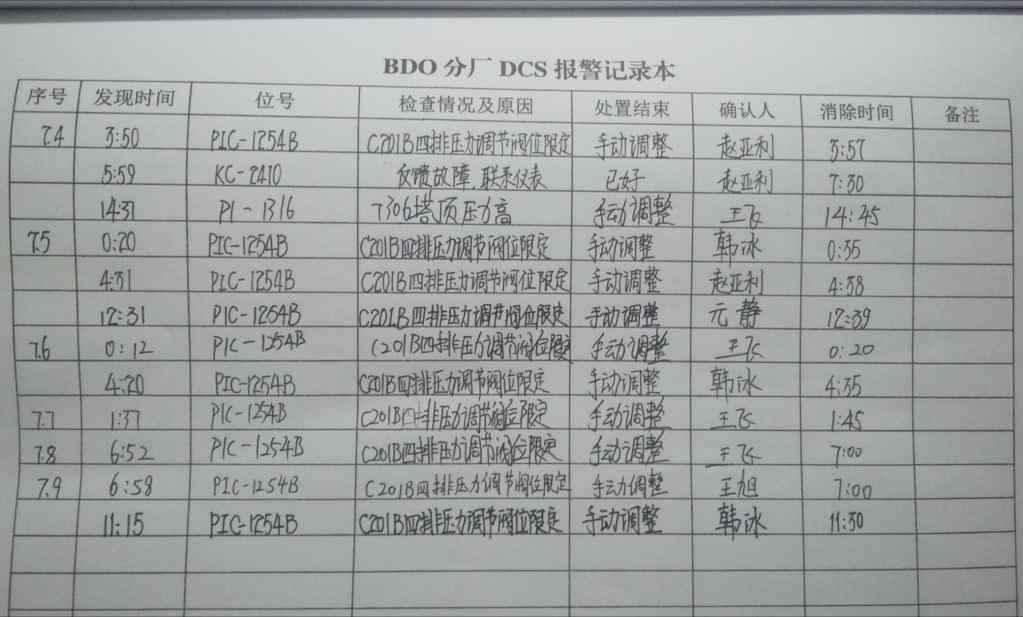 BDO 分厂 DCS 报警记录本
序号 发现时间 位号 检查情况及原因 处置结束 确认人 消除时间 备注
7.4 3:50 PIC-1254B C201B四排压力调节阀位限定 手动调整 赵亚利 3:57
5:59 KC-2410 反馈故障,联系仪表 已好 赵亚利 7:30
14:31 PI-1316 T306塔顶压力高 手动调整 王飞 14:45
7.5 0:20 PIC-1254B C201B四排压力调节阀位限定 手动调整 韩冰 0:35
4:31 PIC-1254B C201B四排压力调节阀位限定 手动调整 赵亚利 4:38
12:31 PIC-1254B C201B四排压力调节阀位限定 手动调整 元静 12:39
7.6 0:12 PIC-1254B C201B四排压力调节阀位限定 手动调整 王飞 0:20
4:20 PIC-1254B C201B四排压力调节阀位限定 手动调整 韩冰 4:35
7.7 1:37 PIC-1254B C201B四排压力调节阀位限定 手动调整 王飞 1:45
7.8 6:52 PIC-1254B C201B四排压力调节阀位限定 手动调整 王飞 7:00
7.9 6:58 PIC-1254B C201B四排压力调节阀位限定 手动调整 王旭 7:00
11:15 PIC-1254B C201B四排压力调节阀位限定 手动调整 韩冰 11:30